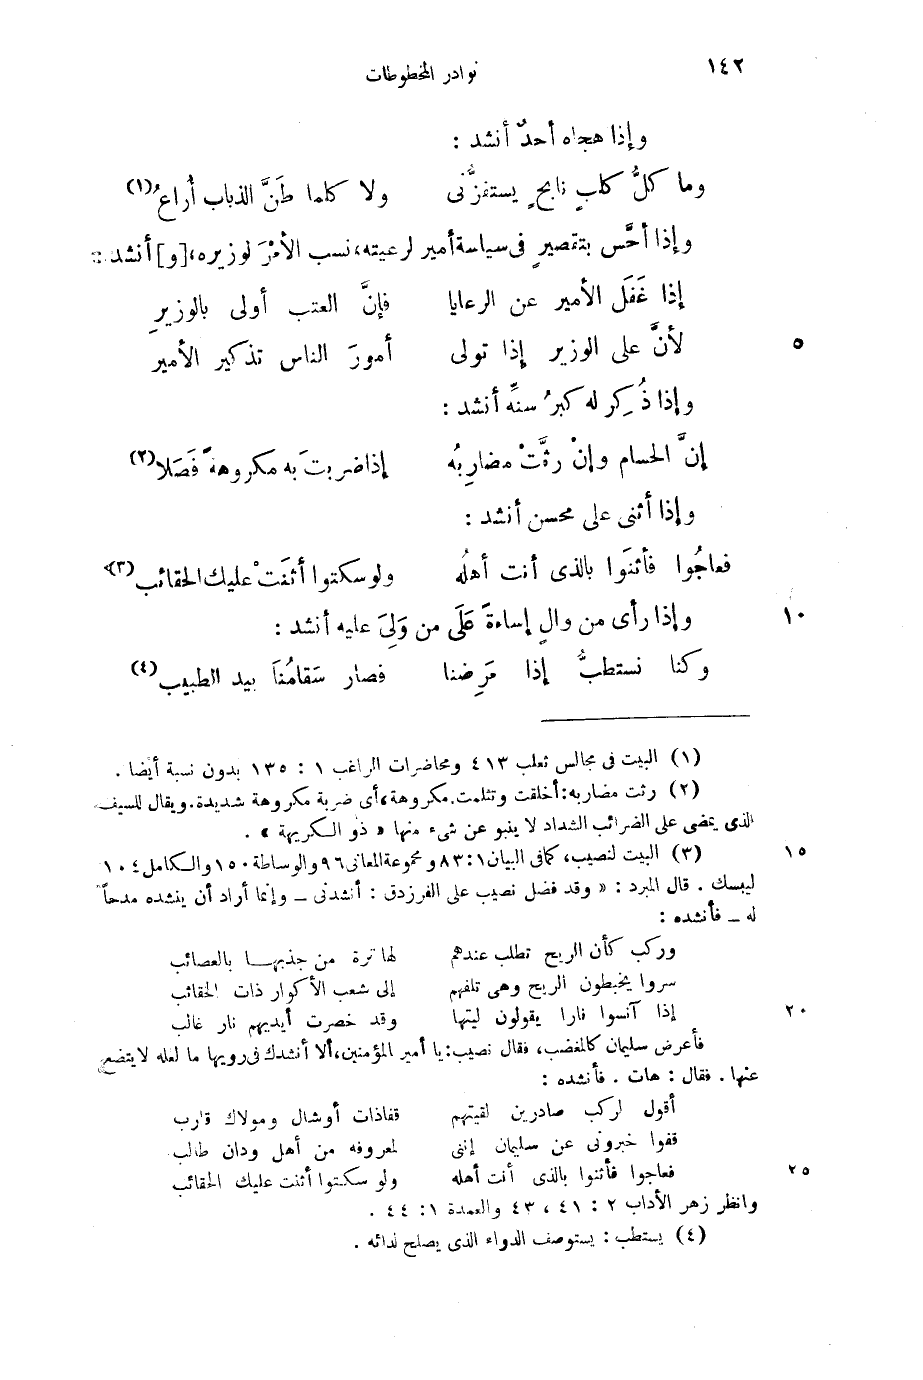 ١٤٢ نوادر المخطوطات
وإذا هجاه أحدٌ أنشد :
وما كلُّ كلبٍ نابحٍ يستفزُّنى ولا كلما طَنَّ الذباب أُراعُ (١)
وإذا أحَّس بتقصيرٍ فى سياسة أمير لرعيته، نسب الأمْرَ لوزيره، [و] أنشد :
إذا غَفَلَ الأمير عن الرعايا فإنَّ العتب أولى بالوزيرِ
لأنَّ على الوزير إذا تولى أمورَ الناس تذكير الأمير ٥
وإذا ذُكِر له كبرُ سنِّه أنشد :
إنَّ الحسام وإنْ رثَّتْ مضاربُه إذا ضربتَ به مكروهةً فَصَلا (٢)
وإذا أثنى على محسن أنشد :
فعاجُوا فأثنَوا بالذى أنت أهلُه ولو سكتوا أثنَتْ عليك الحقائب (٣)
وإذا رأى من والٍ إساءةً عَلَى من وَلِىَ عليه أنشد : ١٠
وكنا نستطبُّ إذا مَرِضنا فصار سَقامُنا بيد الطبيب (٤)
(١) البيت فى مجالس ثعلب ٤١٣ ومحاضرات الراغب ١ : ١٣٥ بدون نسبة أيضا .
(٢) رثت مضاربه : أخلقت وتثلمت. مكروهة، أى ضربة مكروهة شديدة. ويقال للسيف
الذى يمضى على الضرائب الشداد لا ينبو عن شىء منها « ذو الكريهة » .
(٣) البيت لنصيب، كما فى البيان ١ : ٨٣ ومجموعة المعانى ٩٦ والوساطة ١٥٠ والكامل ١٠٤ ١٥
ليبسك . قال المبرد : « وقد فضل نصيب على الفرزدق : أنشدنى ــ وإنما أراد أن ينشده مدحاً
له ــ فأنشده :
وركب كأن الريح تطلب عندهم لها ترة من جذبهـا بالعصائب
سروا يخبطون الريح وهى تلفهم إلى شعب الأكوار ذات الحقائب
إذا آنسوا نارا يقولون ليتها وقد خصرت أيديهم نار غالب ٢٠
فأعرض سليمان كالمغضب، فقال نصيب: يا أمير المؤمنين، ألا أنشدك فى رويها ما لعله لا يتضع
عنها . فقال : هات . فأنشده :
أقول لركب صادرين لقيتهم قفاذات أوشال ومولاك قارب
قفوا خبرونى عن سليمان إننى لمعروفه من أهل ودان طالب
فعاجوا فأثنوا بالذى أنت أهله ولو سكتوا أثنت عليك الحقائب ٢٥
وانظر زهر الأداب ٢ : ٤١ ، ٤٣ والعمدة ١ : ٤٤ .
(٤) يستطب : يستوصف الدواء الذى يصلح لدائه .